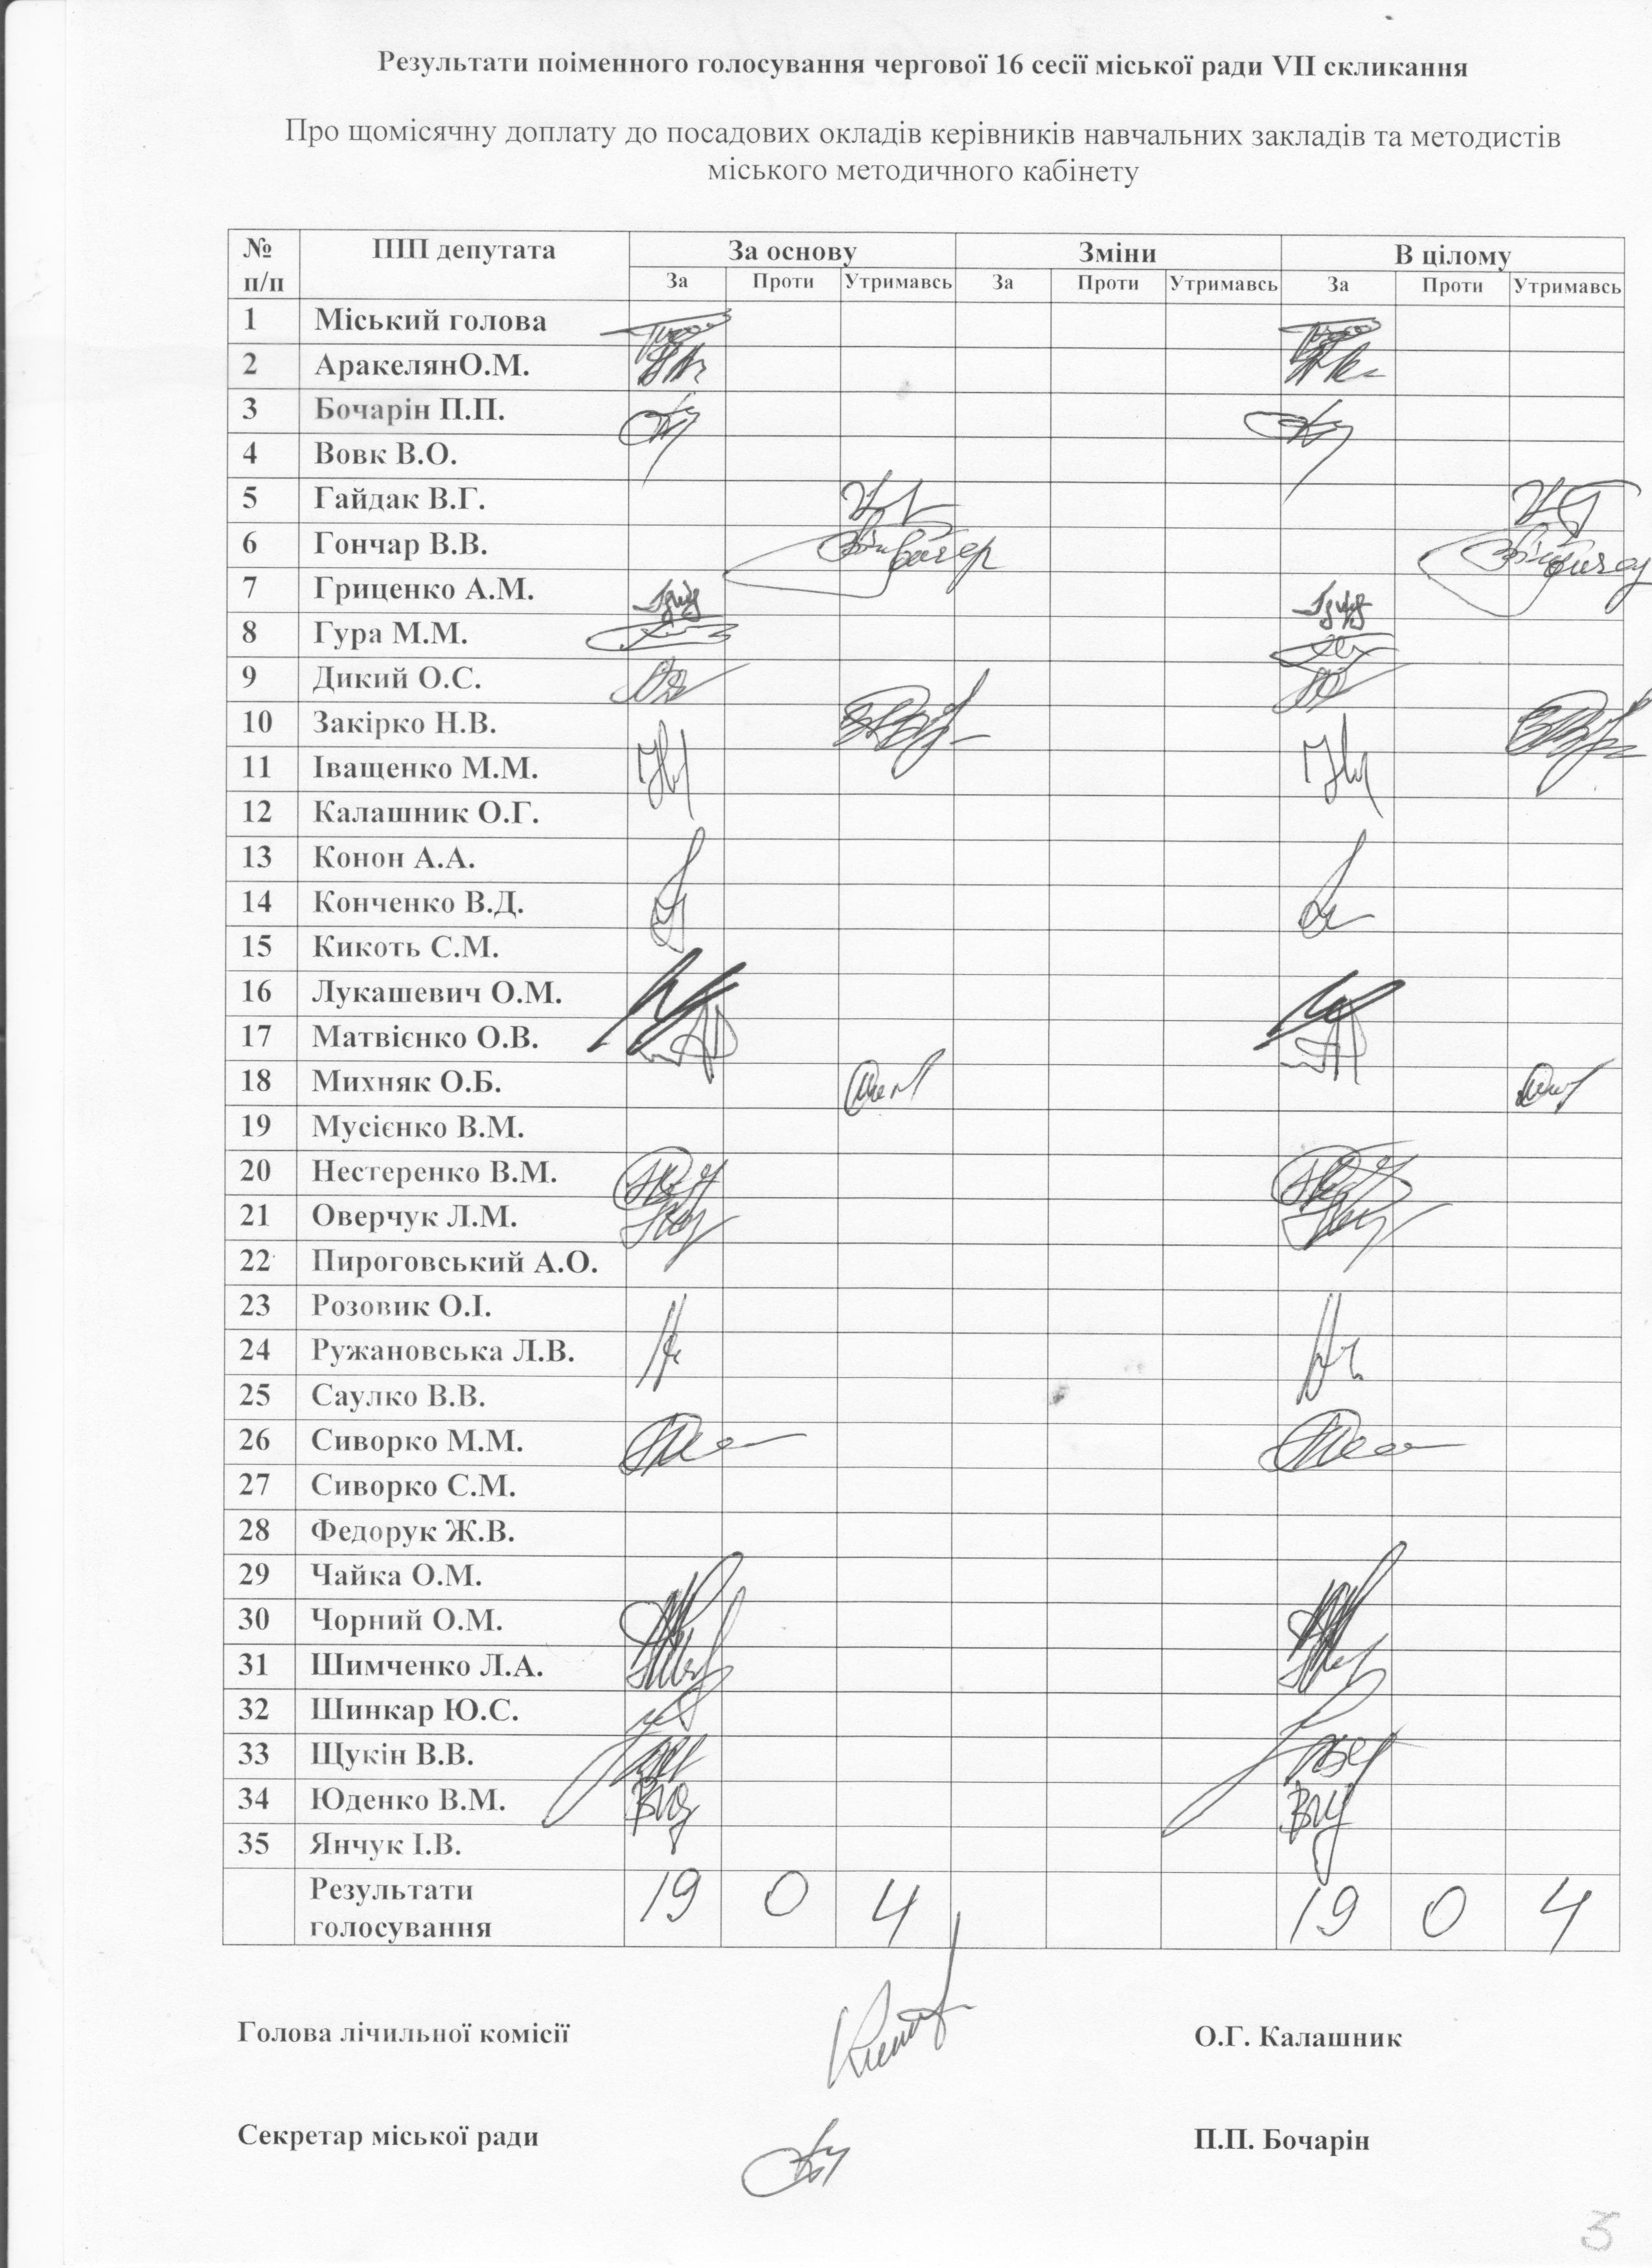 Результати поіменного голосування чергової 16 сесії міської ради VII скликання
Про щомісячну доплату до посадових окладів керівників навчальних закладів та методистів
міського методичного кабінету
№ п/п ПІП депутата За основу Зміни В цілому
За Проти Утримавсь За Проти Утримавсь За Проти Утримавсь
1 Міський голова
2 АракелянО.М.
3 Бочарін П.П.
4 Вовк В.О.
5 Гайдак В.Г.
6 Гончар В.В.
7 Гриценко А.М.
8 Гура М.М.
9 Дикий О.С.
10 Закірко Н.В.
11 Іващенко М.М.
12 Калашник О.Г.
13 Конон А.А.
14 Конченко В.Д.
15 Кикоть С.М.
16 Лукашевич О.М.
17 Матвієнко О.В.
18 Михняк О.Б.
19 Мусієнко В.М.
20 Нестеренко В.М.
21 Оверчук Л.М.
22 Пироговський А.О.
23 Розовик О.І.
24 Ружановська Л.В.
25 Саулко В.В.
26 Сиворко М.М.
27 Сиворко С.М.
28 Федорук Ж.В.
29 Чайка О.М.
30 Чорний О.М.
31 Шимченко Л.А.
32 Шинкар Ю.С.
33 Щукін В.В.
34 Юденко В.М.
35 Янчук І.В.
Результати голосування 19 0 4 19 0 4
Голова лічильної комісії О.Г. Калашник
Секретар міської ради П.П. Бочарін
3